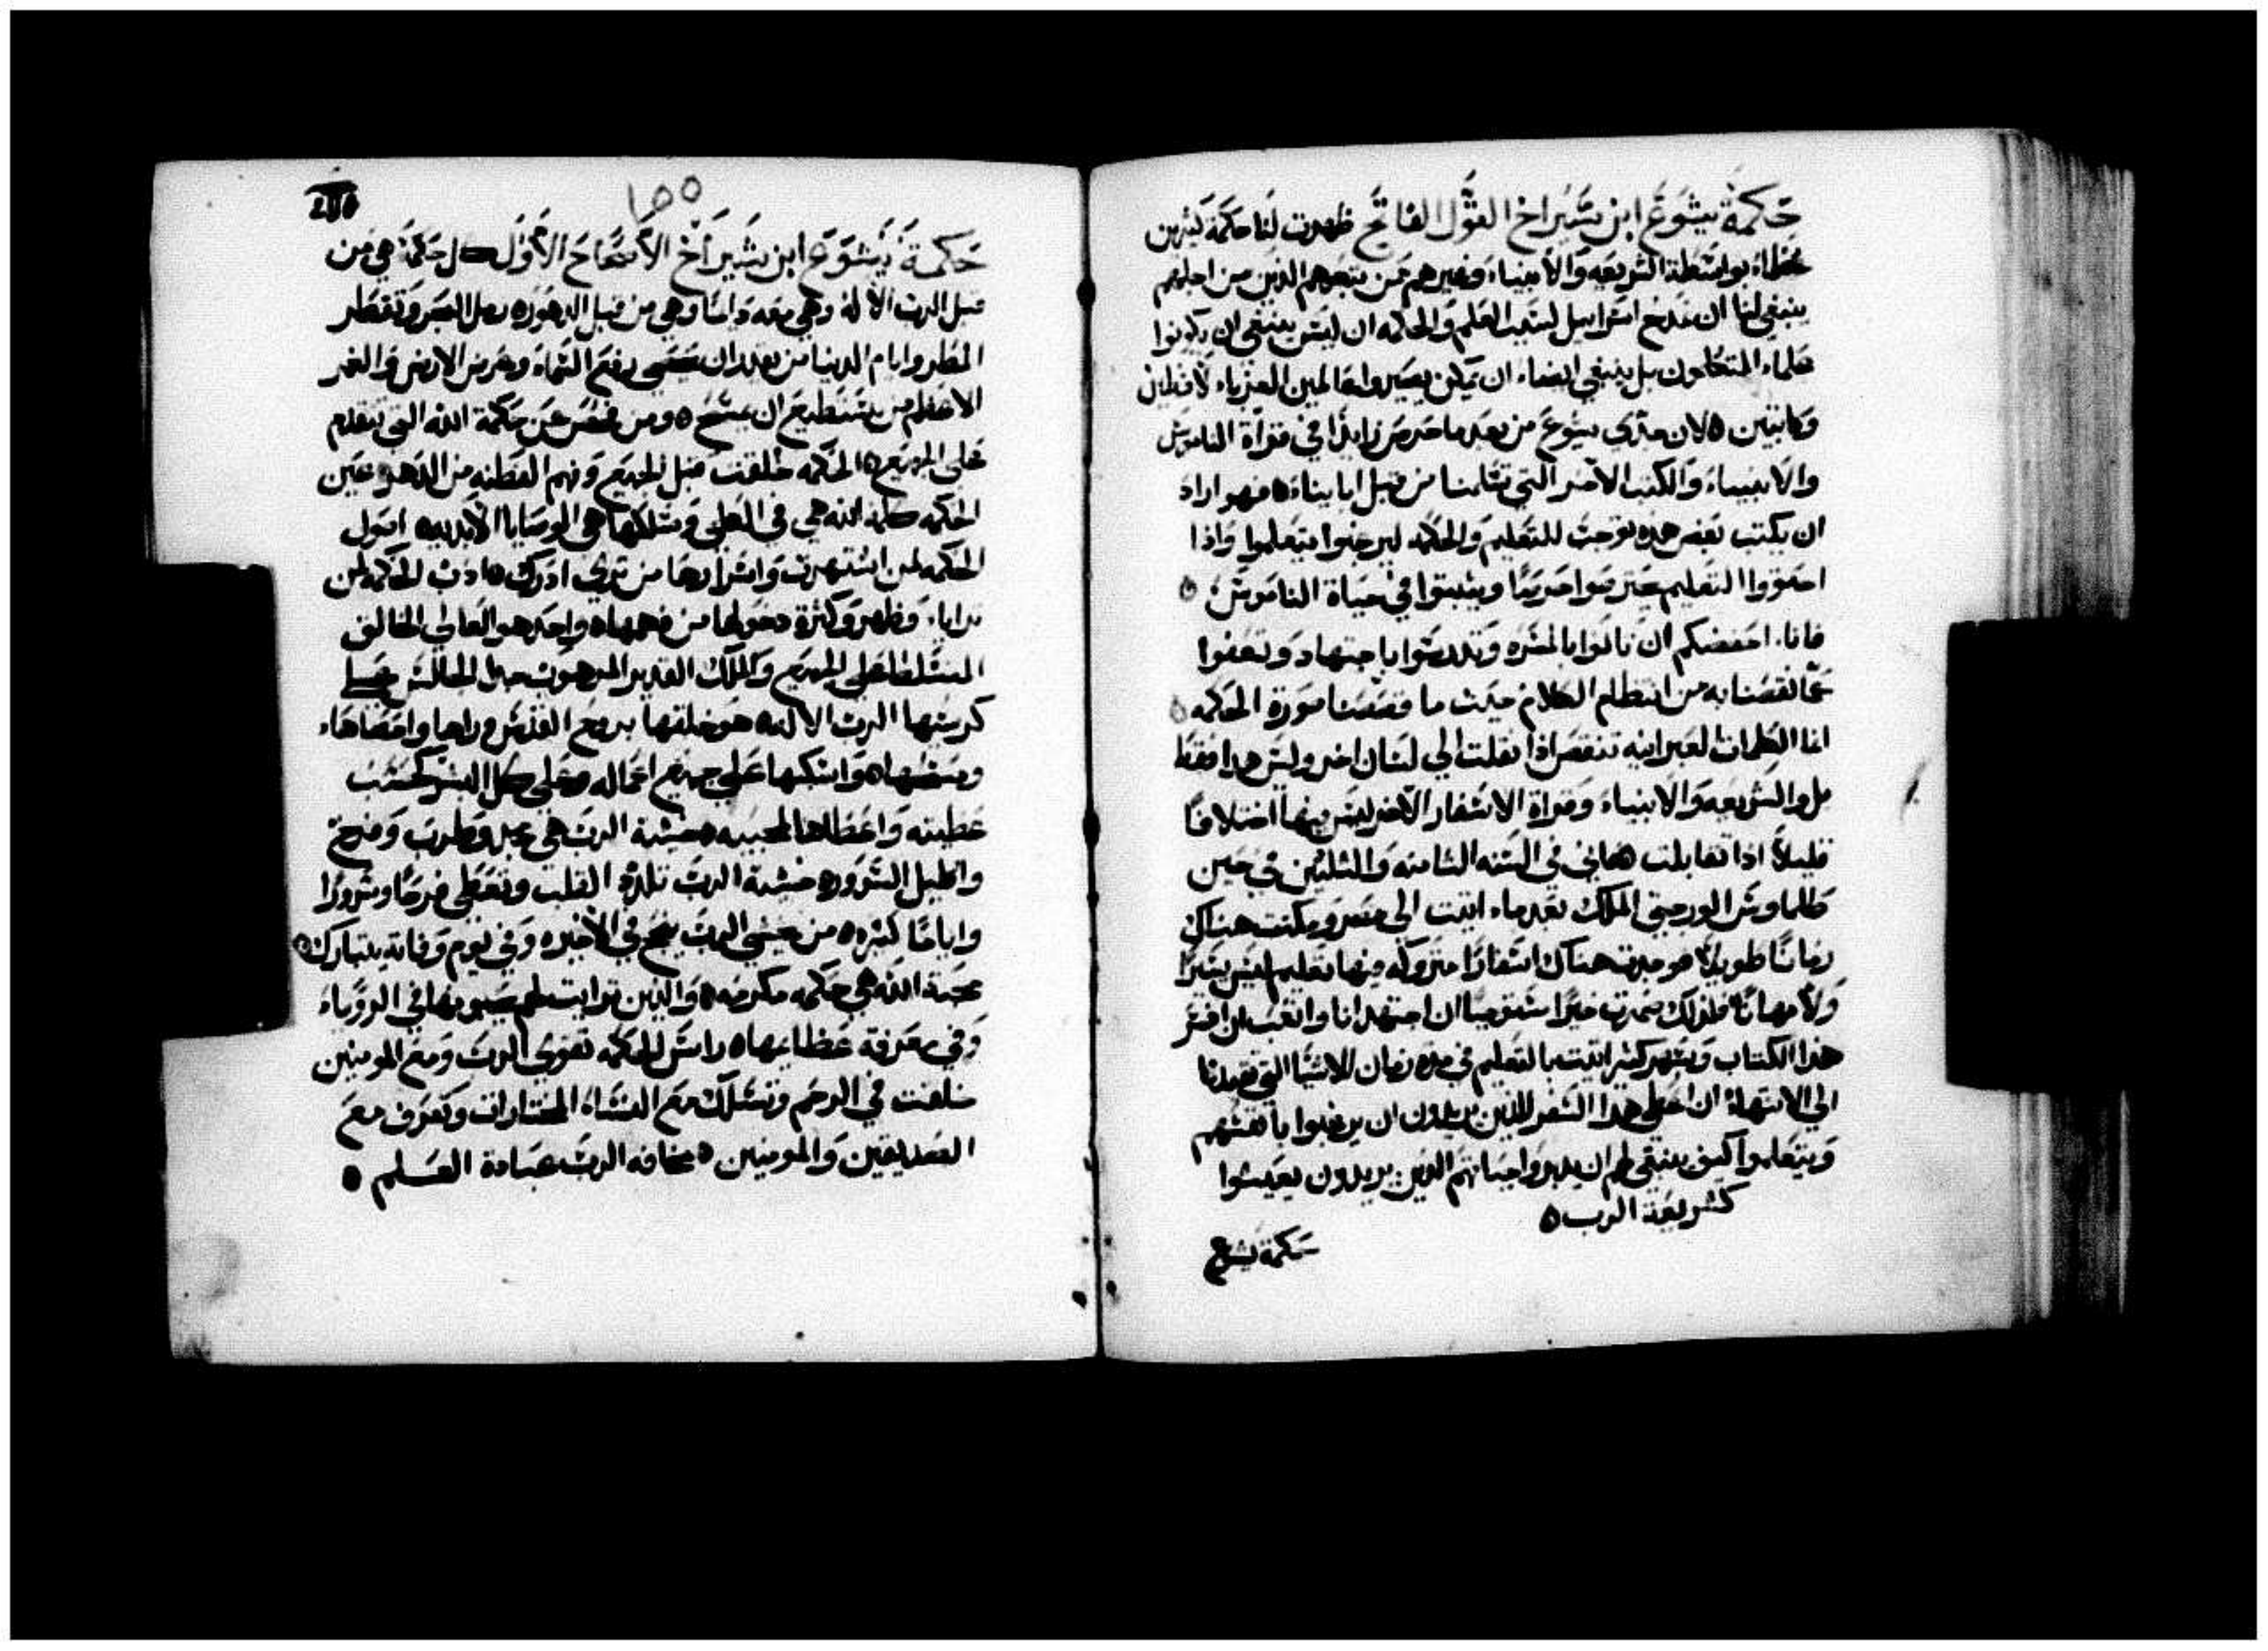 حكمة يشوع ابن شيراخ القول الفاتح ظهرت لنا حكمة كثيرين
عظماء بواسطة الشريعه والانبياء وغيرهم من تبعوهم الذين من اجلهم
ينبغي لنا ان نمدح اسراييل لسبب العلم والحكمه ان ليس ينبغي ان يكونوا
علماء المتكلمون بل ينبغي ايضاء ان يمكن يصيروا عالمين الغرباء لافظين
وكاتبين ٥ لان جدي يشوع من بعد ما حرص زايدًا في قراة الناموس
والانبياء والكتب الاخر التي تسلمنا من قبل ابايناء ٥ فهو اراد
ان يكتب بعض هذه توجب للتعليم والحكمه ليرغبوا يتعلموا واذا
احققوا التعليم ويثبتوا في حياة الناموس ٥
فانا احضكم ان تاتوا بالمسره وتدرسوا باجتهاد وتعفوا
عما نقصنا به من انتظام الكلام حيث ما قصصنا صورة الحكمه ٥
اما الكلمات العبرانيه تنقص اذا نقلت الي لسان اخر وليس هدا فقط
بل والشريعه والانبياء وقراة الاسفار الاخر ليس بينها اختلافًا
قليلاً اذا تقابلت فاني في السنه الثامنه والثلثين في حين
طلماوس الورجتي الملك بعد ماء اتيت الي مصر ومكثت هناك
زمانًا طويلاً فوجدت هناك اسفارًا متروكه فيها تعليم ليس يسيرًا
ولا مهانًا فلذلك ان اجتهد انا واتعب لان افسر
هذا الكتاب وبسهر كثير اتيت بالتعليم في مدة زمان للاشيا التي
الي الانتهاء ان اعطي هدا السفر للذين يريدون ان يرغبوا بانفسهم
ويتعلموا كيف ينبغي لهم ان يدبروا حياتهم الذين يريدون يعيشوا
كشريعة الرب ٥
حكمة يشوع
١٥٥
حكمة يشوع ابن شيراخ الاصحاح الاول كل حكمة هي من
قبل الرب الاله وهي معه دايمًا وهي من قبل الدهور ٥ رمل البحر وقطر
المطر وايام الدنيا من يقدر ان يحصي رفع السماء وعرض الارض والغمر
الاعظم من يستطيع ان يمسح ٥ ومن فحص عن حكمة الله التي تتقدم
على الجميع ٥ الحكمه خلقت قبل الجميع وفهم الفطنه من الدهر عين
الحكمه كلمة الله هي في العلي ومسلكها هي الوصايا الابديه ٥ اصول
الحكمه لمن اشتهرت واسرارها من تري ادرك ٥ ادب الحكمه لمن
ترايا وظهر وكثرة دخولها من فهمها ٥ واحد هو العالي الخالق
المتسلط على الجميع والملك القدير المرهوب جدا الجالس على
كرسيها الرب الاله ٥ هو خلقها بروح القدس وراها واحصاها
ومسحها ٥ واسكبها على جميع اعماله وعلى كل البشر كحسب
عطيته واعطاها لمحبيه خشية الرب هي مجد وطرب وفرح
واكليل السرور ٥ خشية الرب تلذذ القلب وتعطي فرحًا وسرورًا
واياما كثيره ٥ من يخشي الرب ينجح في الاخيره وفي يوم وفاته يتبارك ٥
محبة الله هي حكمه مكرمه ٥ والذين ترايت لهم يحبونها في الروياء
وفي معرفة عظايمها ٥ راس الحكمه تقوي الرب ومع المومنين
خلقت في الرحم وتسلك مع النساء المختارات وتعرف مع
الصديقين والمومنين ٥ مخافه الرب عبادة العلم ٥